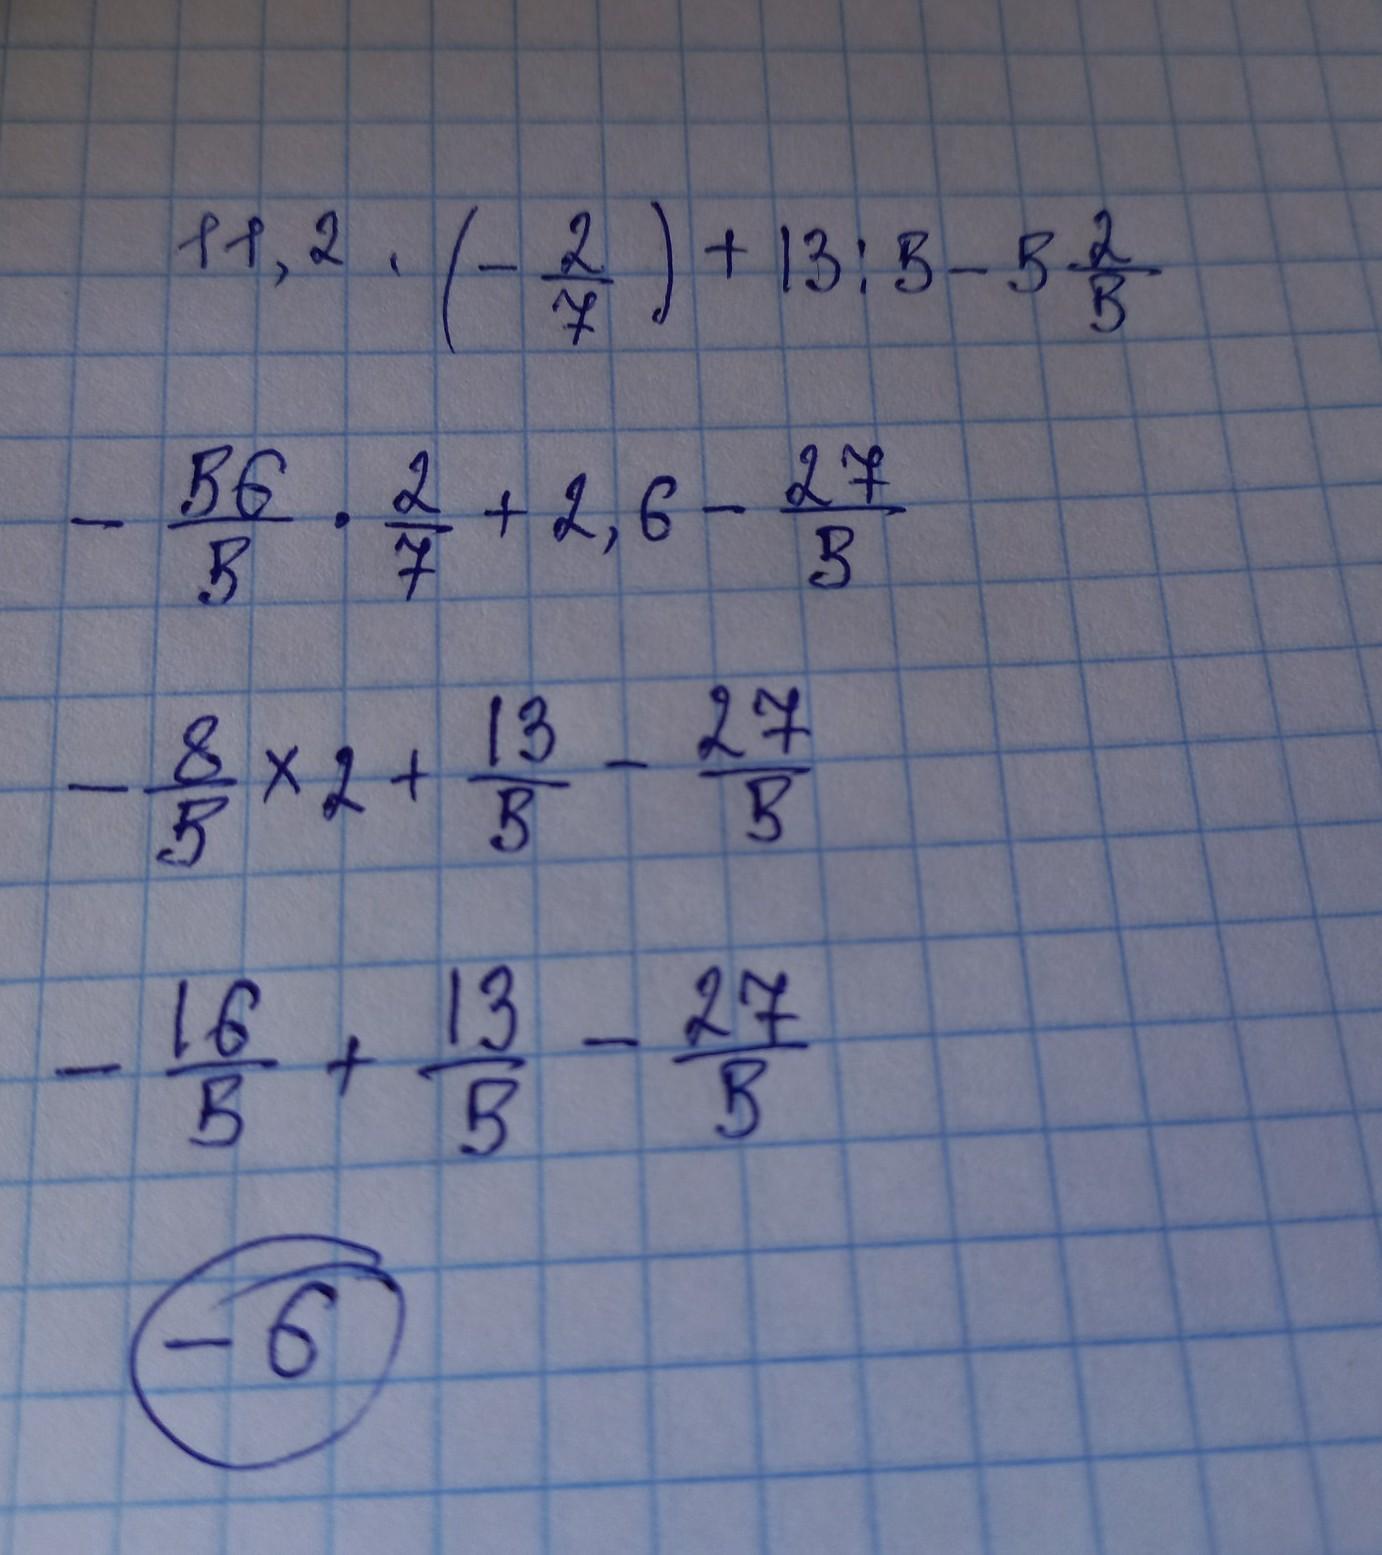 11,2 · (- 2/7) + 13 : 5 - 5 2/5
- 56/5 · 2/7 + 2,6 - 27/5
- 8/5 × 2 + 13/5 - 27/5
- 16/5 + 13/5 - 27/5
- 6